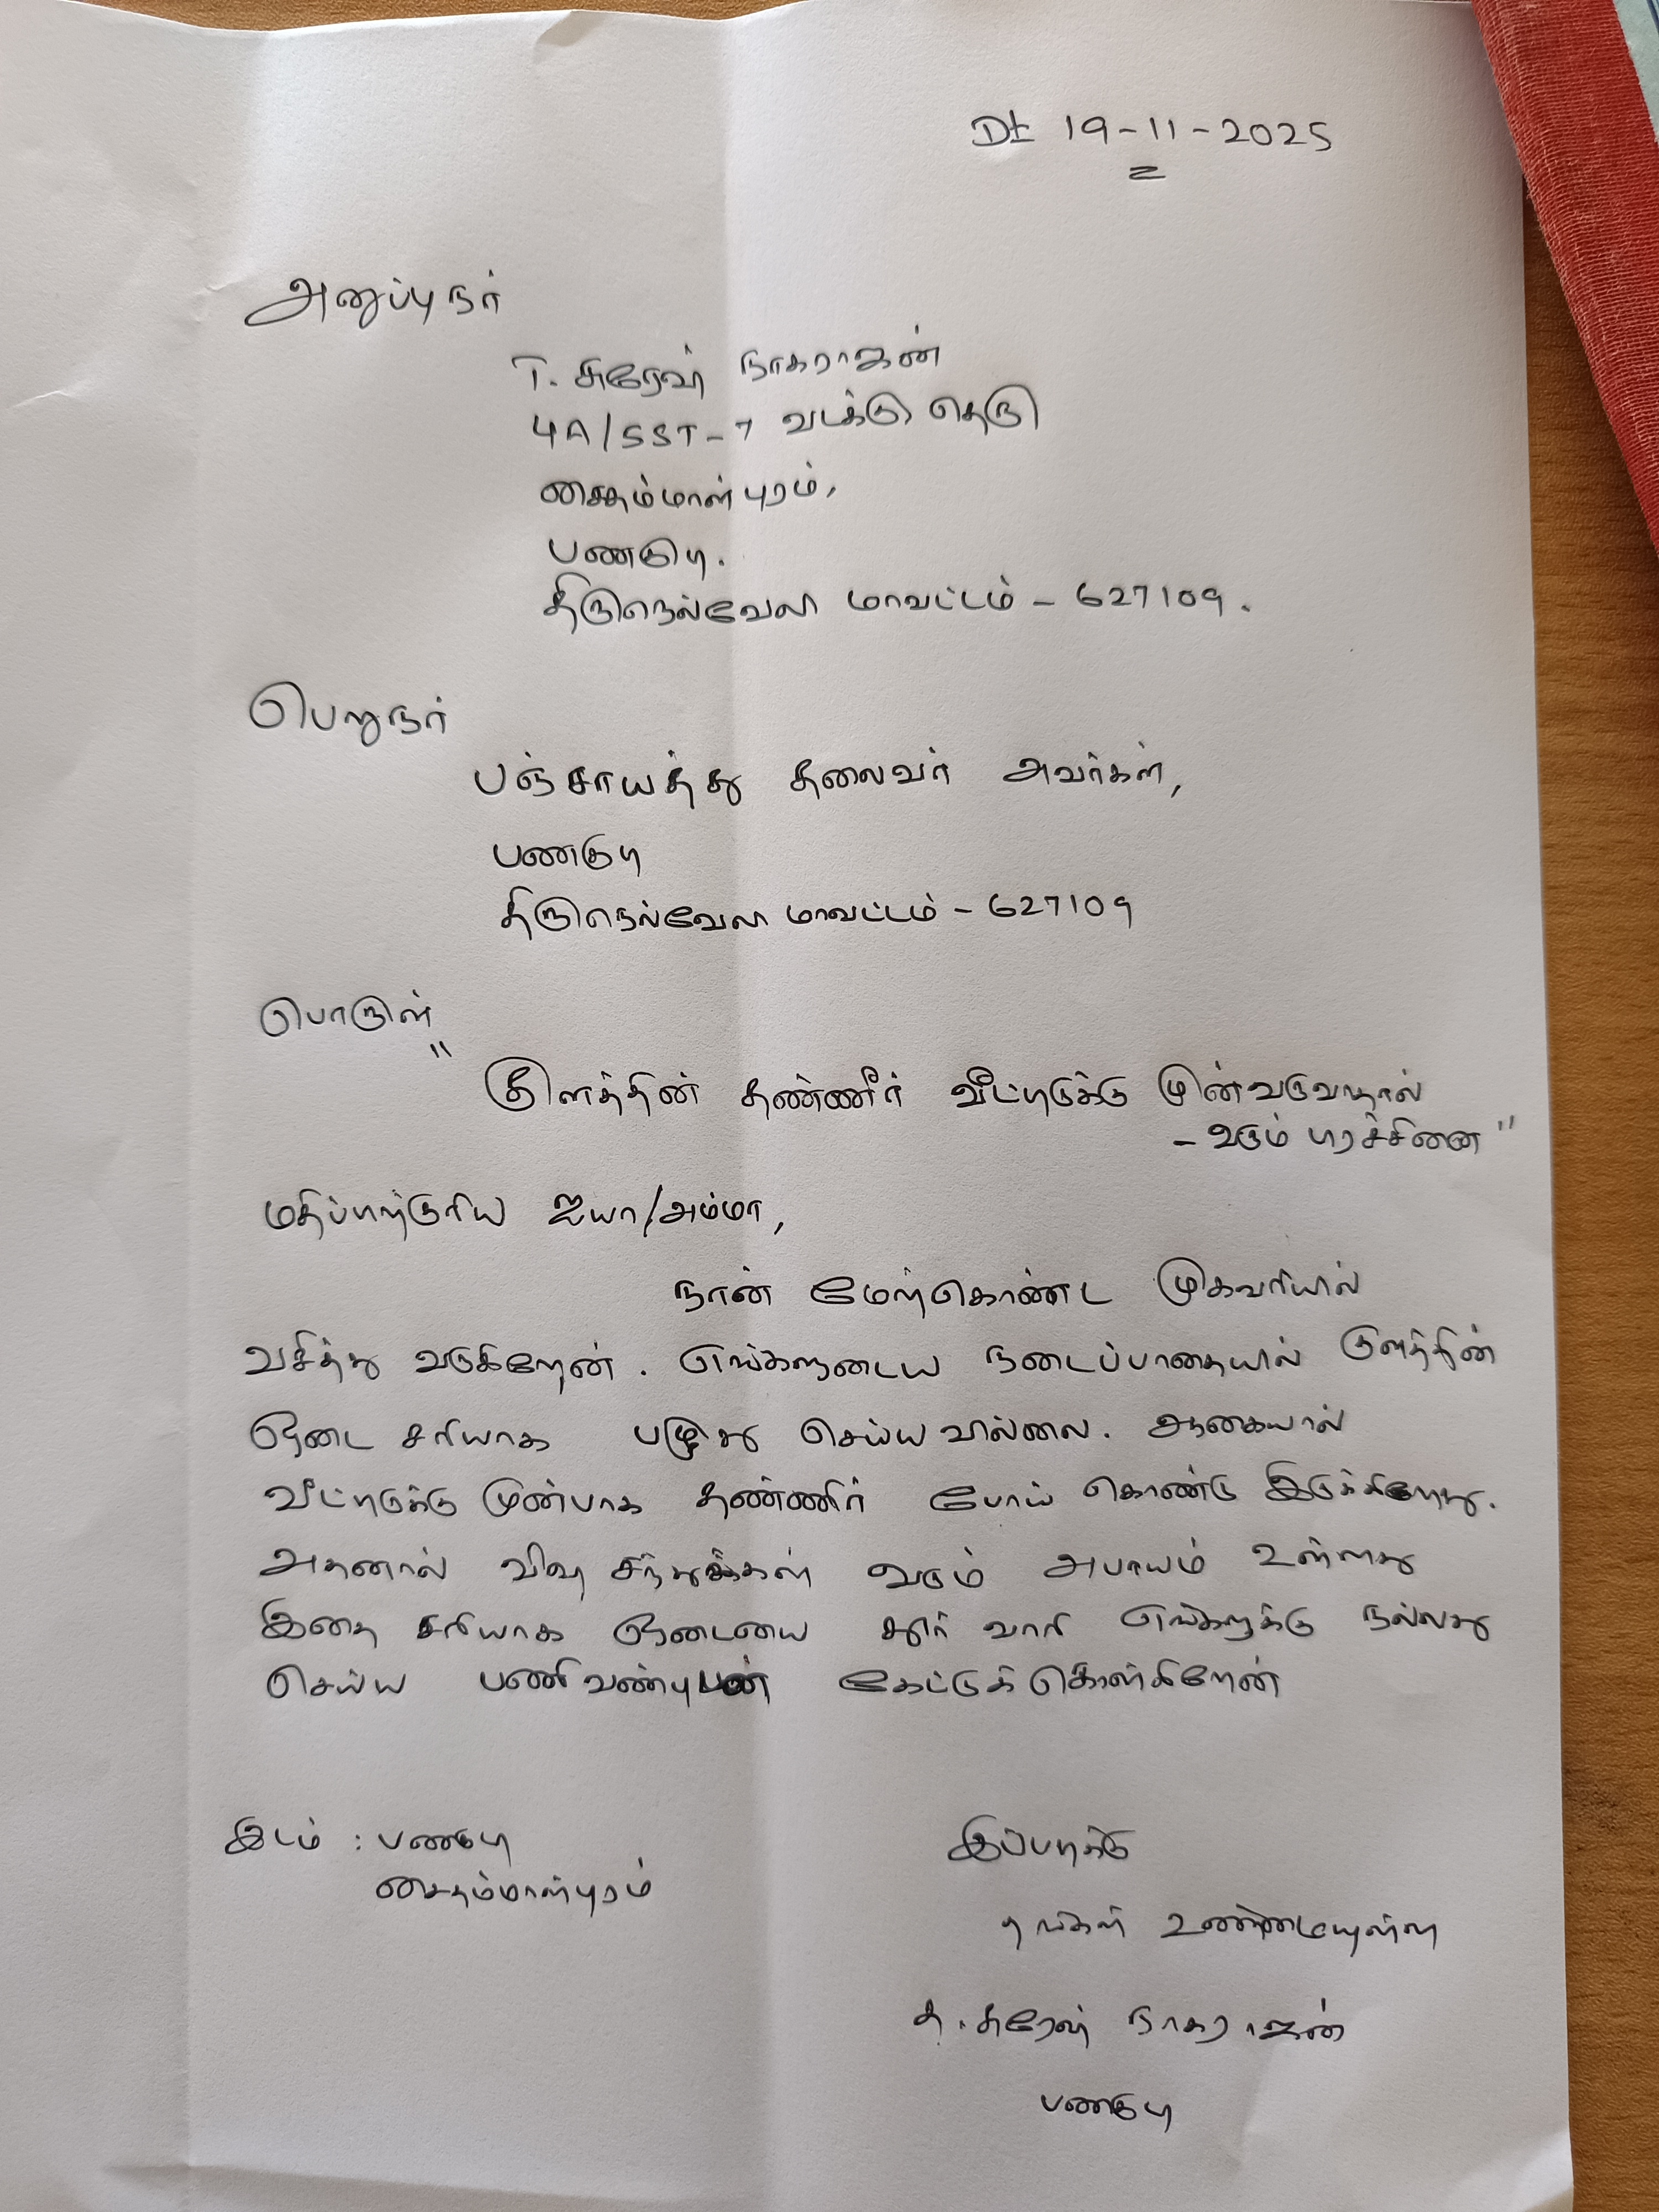 Dt 19-11-2025
அனுப்புநர்
T. சுரேஷ் நாகராஜன்
4A/SST-7 வடக்கு தெரு
சைதம்மாள்புரம்,
பணகுடி.
திருநெல்வேலி மாவட்டம் - 627109.
பெறுநர்
பஞ்சாயத்து தலைவர் அவர்கள்,
பணகுடி
திருநெல்வேலி மாவட்டம் - 627109
பொருள்
" குளத்தின் தண்ணீர் வீட்டிற்கு முன்வருவதால்
- வரும் பிரச்சினை "
மதிப்பிற்குரிய ஐயா/அம்மா,
நான் மேற்கொண்ட முகவரியில்
வசித்து வருகிறேன். எங்களுடைய நடைப்பாதையில் குளத்தின்
ஓடை சரியாக பழுது செய்யவில்லை. ஆகையால்
வீட்டிற்கு முன்பாக தண்ணிர் போய் கொண்டு இருக்கிறது.
அதனால் விஷ சந்துக்கள் வரும் அபாயம் உள்ளது
இதை சரியாக ஓடையை தூர் வாரி எங்களுக்கு நல்லது
செய்ய பணிவண்புடன் கேட்டுக் கொள்கிறேன்
இடம் : பணகுடி
சைதம்மாள்புரம்
இப்படிக்கு
தங்கள் உண்மையுள்ள
த. சுரேஷ் நாகராஜன்
பணகுடி